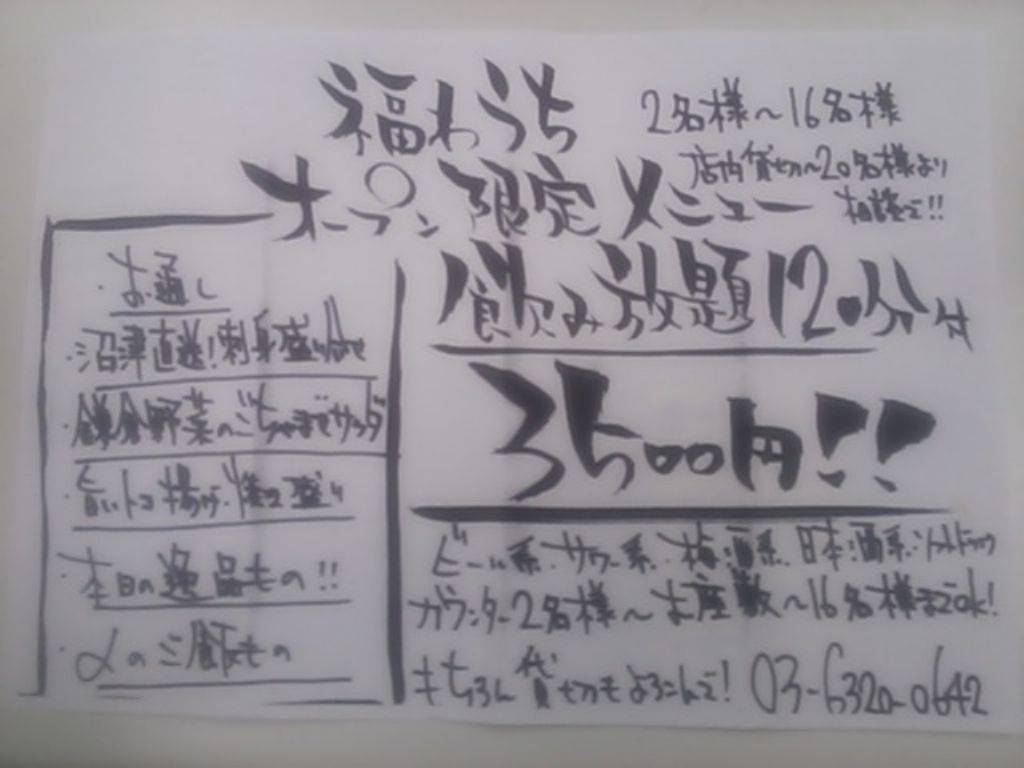 福わうち
2名様～16名様
店内貸切～20名様より
相談で!!
オープン限定メニュー
飲み放題120分付
3500円!!
・お通し
・沼津直送!刺身盛り合せ
・鎌倉野菜のごちゃまぜサラダ
・旨いトコ揚げ
盛り
・本日の逸品もの!!
・〆のご飯もの
ビール系・サワー系・梅酒系・日本酒系・ソフトドリンク
カウンター2名様～お座敷～16名様までok!
もちろん貸切もよろこんで! 03-6320-0642